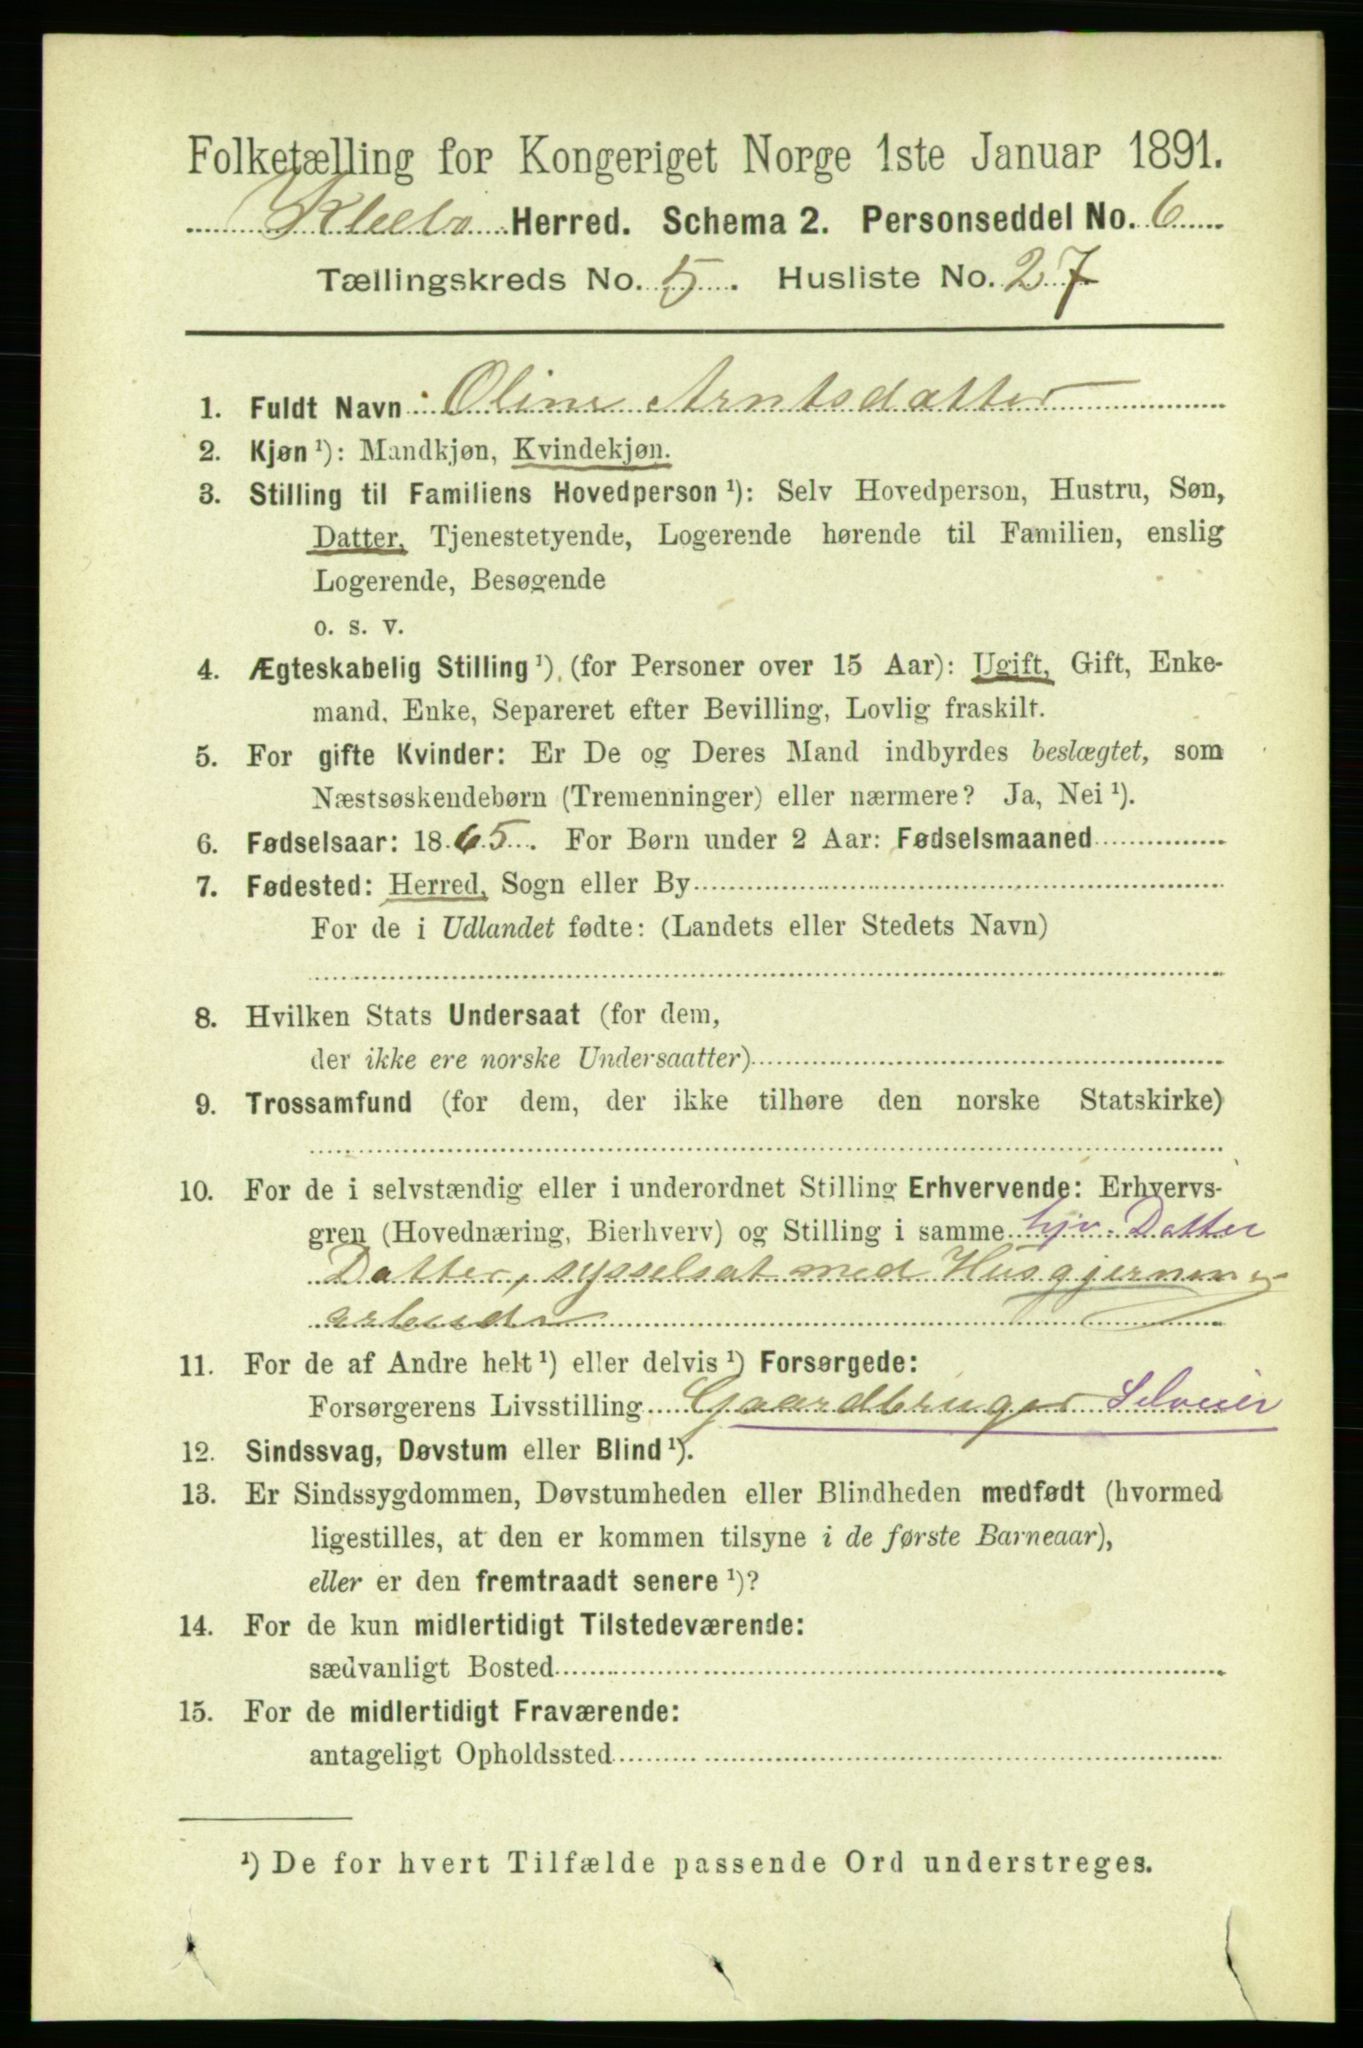 Folketælling for Kongeriget Norge 1ste Januar 1891.
Klæbo Herred. Schema 2. Personseddel No. 6
Tællingskreds No. 5. Husliste No. 27
1. Fuldt Navn: Oline Arntsdatter
2. Kjøn ¹): Mandkjøn, Kvindekjøn.
3. Stilling til Familiens Hovedperson ¹): Selv Hovedperson, Hustru, Søn,
Datter, Tjenestetyende, Logerende hørende til Familien, enslig
Logerende, Besøgende
o. s. v.
4. Ægteskabelig Stilling ¹) (for Personer over 15 Aar): Ugift, Gift, Enke-
mand, Enke, Separeret efter Bevilling, Lovlig fraskilt.
5. For gifte Kvinder: Er De og Deres Mand indbyrdes beslægtet, som
Næstsøskendebørn (Tremenninger) eller nærmere? Ja, Nei ¹).
6. Fødselsaar: 1865. For Børn under 2 Aar: Fødselsmaaned
7. Fødested: Herred, Sogn eller By
For de i Udlandet fødte: (Landets eller Stedets Navn)
8. Hvilken Stats Undersaat (for dem,
der ikke ere norske Undersaatter)
9. Trossamfund (for dem, der ikke tilhøre den norske Statskirke)
10. For de i selvstændig eller i underordnet Stilling Erhvervende: Erhvervs-
gren (Hovednæring, Bierhverv) og Stilling i samme hjv. Datter
Datter, sysselsat med Husgjerning
11. For de af Andre helt ¹) eller delvis ¹) Forsørgede:
Forsørgerens Livsstilling Gaardbruger Selveier
12. Sindssvag, Døvstum eller Blind ¹).
13. Er Sindssygdommen, Døvstumheden eller Blindheden medfødt (hvormed
ligestilles, at den er kommen tilsyne i de første Barneaar),
eller er den fremtraadt senere ¹)?
14. For de kun midlertidigt Tilstedeværende:
sædvanligt Bosted
15. For de midlertidigt Fraværende:
antageligt Opholdssted
¹) De for hvert Tilfælde passende Ord understreges.